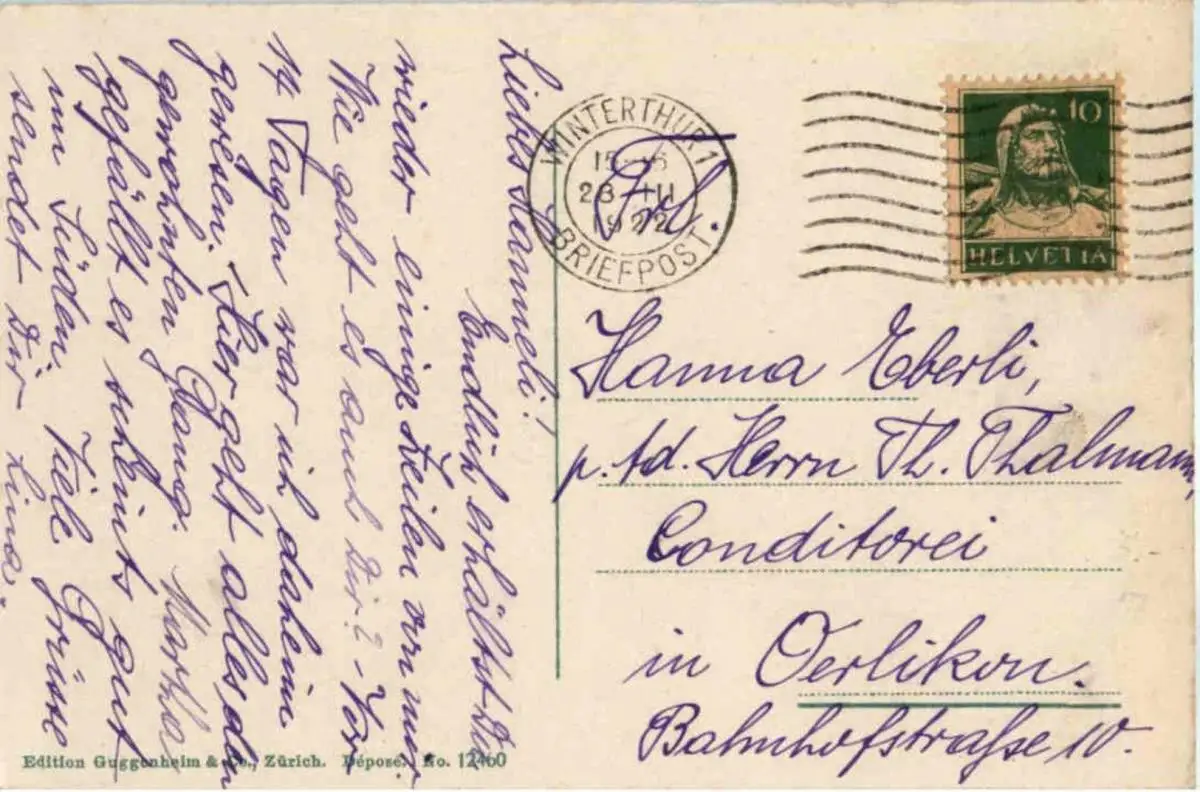 Liebs Hanneli!
Endlich erhältst Du
wieder einige Zeilen von mir.
Wie geht es auch Dir? - Vor
14 Tagen war ich daheim
gewesen. Hier geht alles den
gewohnten Gang. Martha
gefällt es scheints gut
im Süden. Viele Grüsse
sendet Dir Lina.
WINTERTHUR 1
BRIEFPOST
10
HELVETIA
Frl.
Hanna Eberli,
p. Ad. Herrn Th. Thalmann,
Conditorei
in Oerlikon.
Bahnhofstraße 10.
Edition Guggenheim & Co., Zürich. Déposé. No. 12460